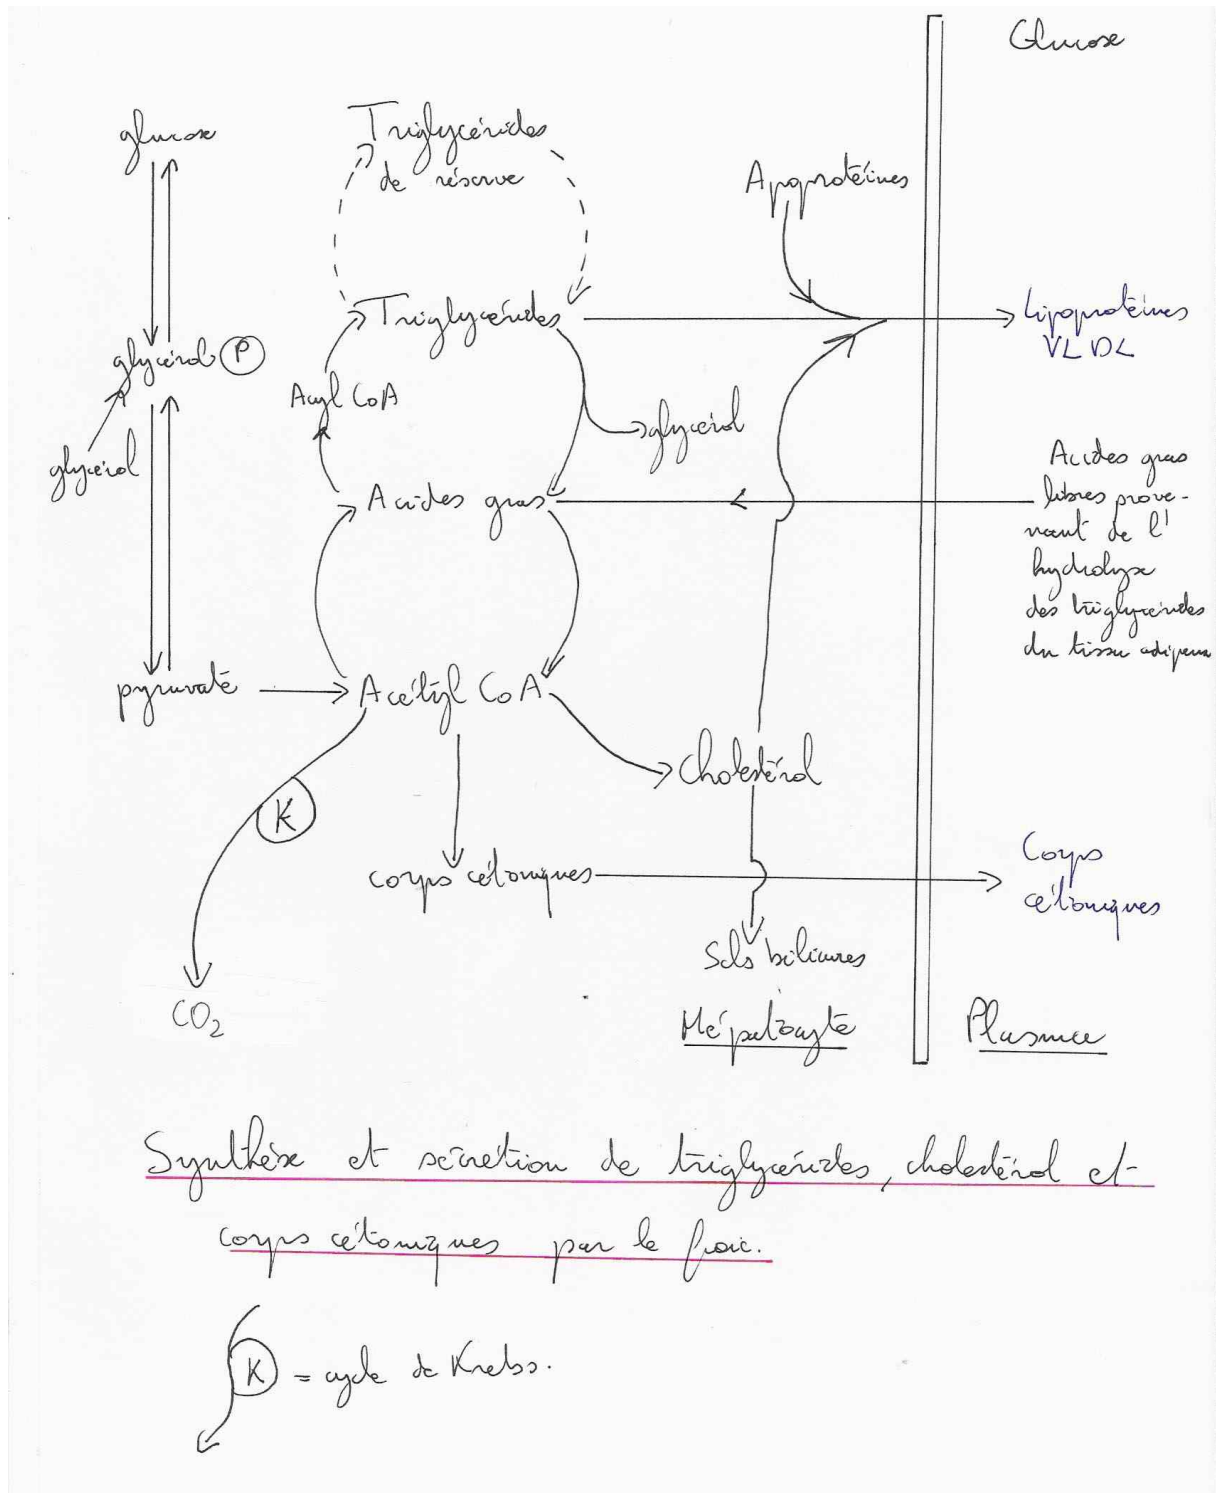 Glucose
glucose
Triglycérides
de réserve
Apoprotéines
Triglycérides
Lipoprotéines
VLDL
glycérol P
Acyl CoA
glycérol
glycérol
Acides gras
libres prove-
nant de l'
hydrolyse
des triglycérides
du tissu adipeux
Acides gras
pyruvate
Acétyl CoA
Cholestérol
K
corps cétoniques
Corps
cétoniques
Sels biliaires
CO2
Hépatocyte
Plasma
Synthèse et sécrétion de triglycérides, cholestérol et
corps cétoniques par le foie.
K = cycle de Krebs.